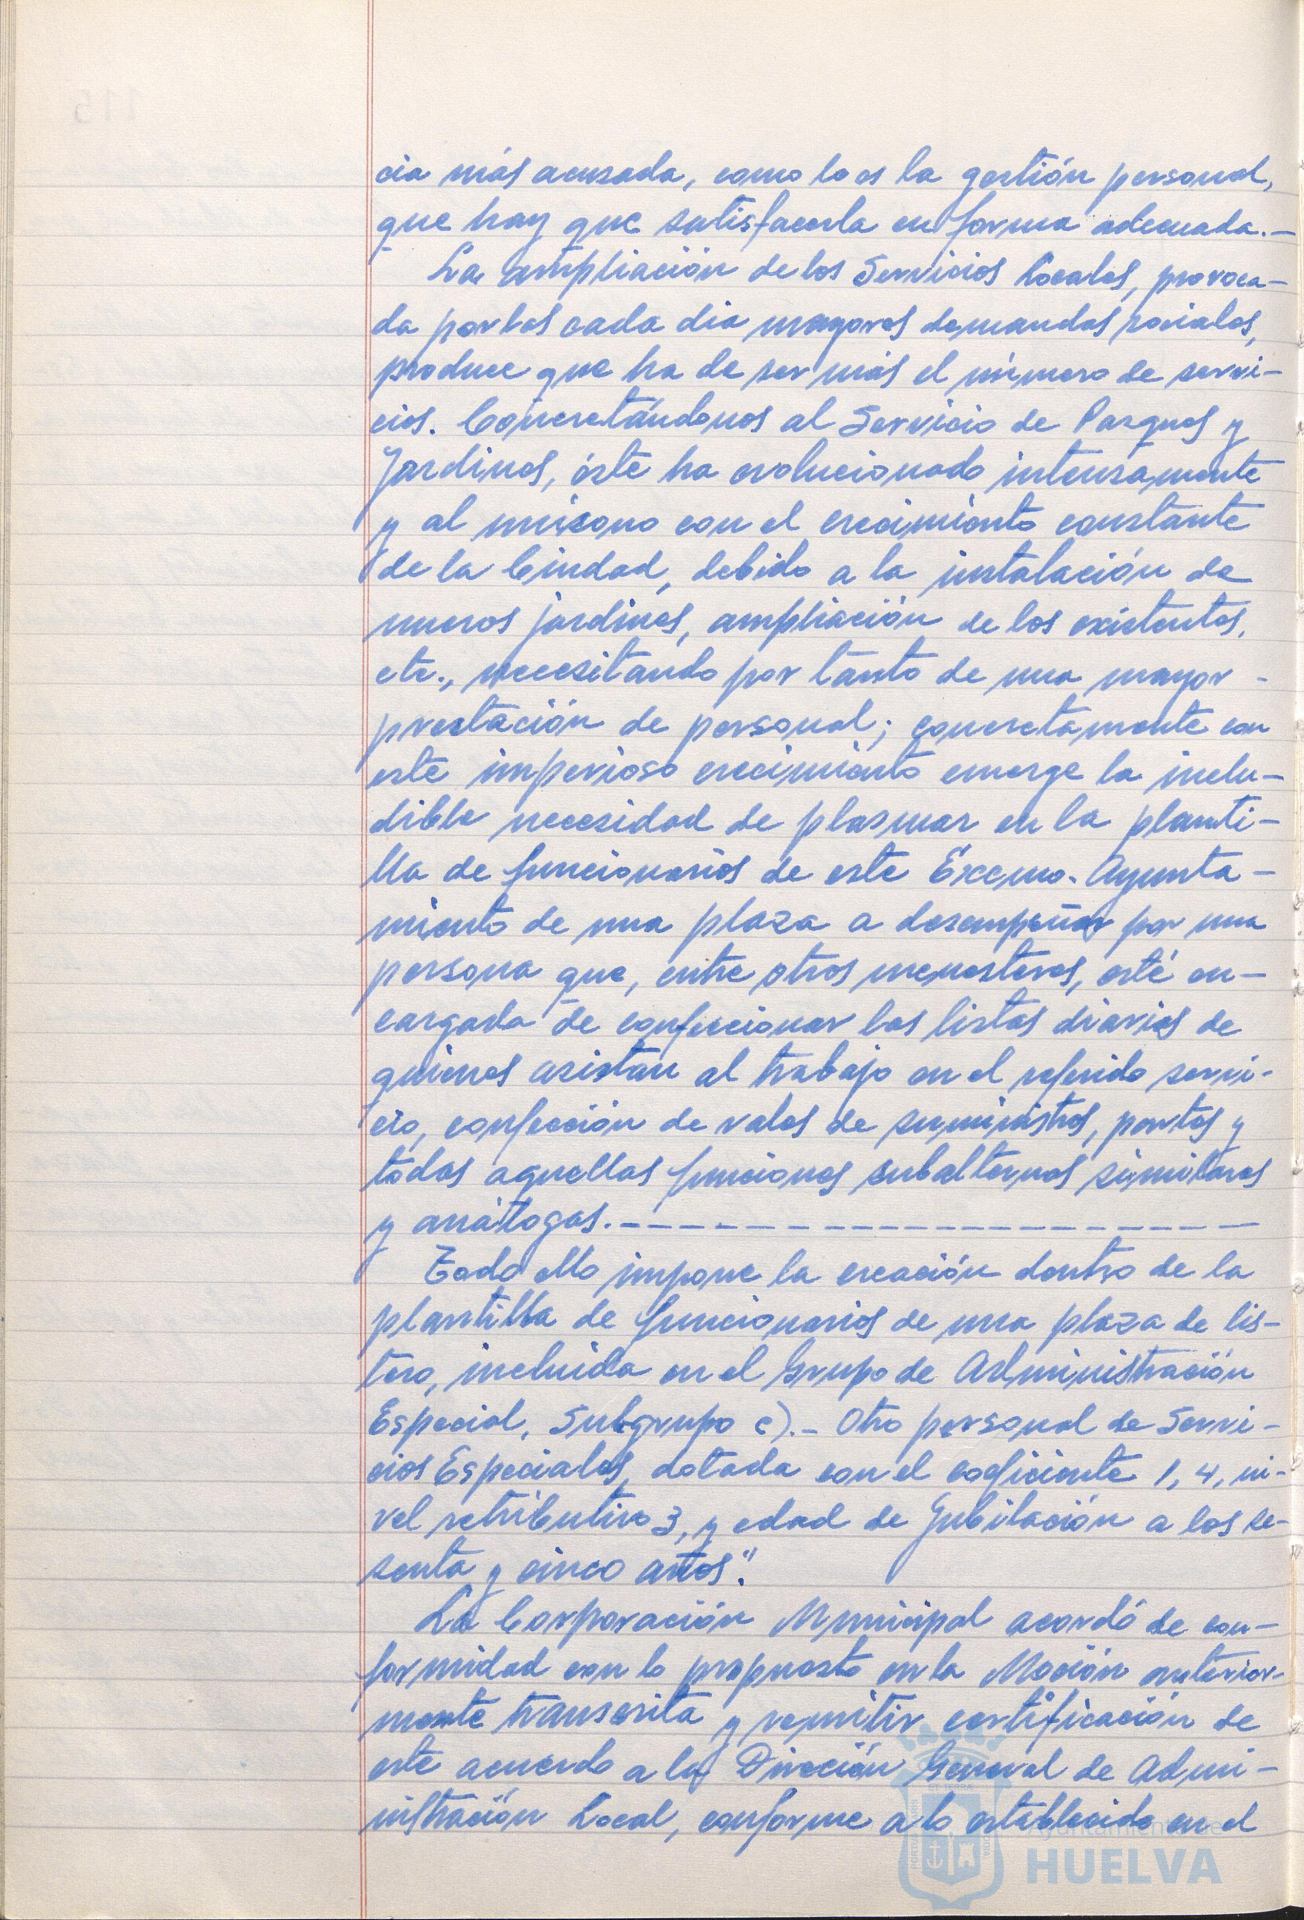 cia más acusada, como lo es la gestión personal,
que hay que satisfacerla en forma adecuada.—
La ampliación de los Servicios Locales, provoca-
da por las cada dia mayores demandas sociales,
produce que ha de ser más el número de servi-
cios. Concretándonos al Servicio de Parques y
Jardines, éste ha evolucionado intensamente
y al unísono con el crecimiento constante
de la Ciudad, debido a la instalación de
nuevos jardines, ampliación de los existentes,
etc., necesitando por tanto de una mayor -
prestación de personal; concretamente con
este imperioso crecimiento emerge la inelu-
dible necesidad de plasmar en la planti-
lla de funcionarios de este Excmo. Ayunta-
miento de una plaza a desempeñar por una
persona que, entre otros menesteres, esté en-
cargada de confeccionar las listas diarias de
quienes asistan al trabajo en el referido servi-
cio, confección de vales de suministros, portes y
todas aquellas funciones subalternas similares
y análogas.— — — — — — — — — — — — —
Todo ello impone la creación dentro de la
plantilla de funcionarios de una plaza de lis-
tero, incluida en el Grupo de Administración
Especial, Subgrupo c).- Otro personal de Servi-
cios Especiales, dotada con el coeficiente 1,4, ni-
vel retributivo 3, y edad de Jubilación a los se-
senta y cinco años".
La Corporación Municipal acordó de con-
formidad con lo propuesto en la Moción anterior-
mente transcrita y remitir certificación de
este acuerdo a la Dirección General de Admi-
nistración Local, conforme a lo establecido en el
Ayuntamiento de
HUELVA